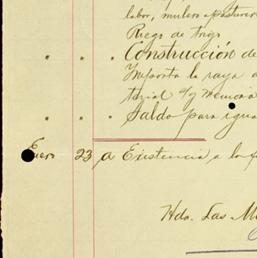 labor, mulero y pasturero
Riego de trigo
" " " Construcción de
Importa la raya d
terial s/g memoria
" " " Saldo para igua
Enero 23 a Existencia a la f
Hda. Las M